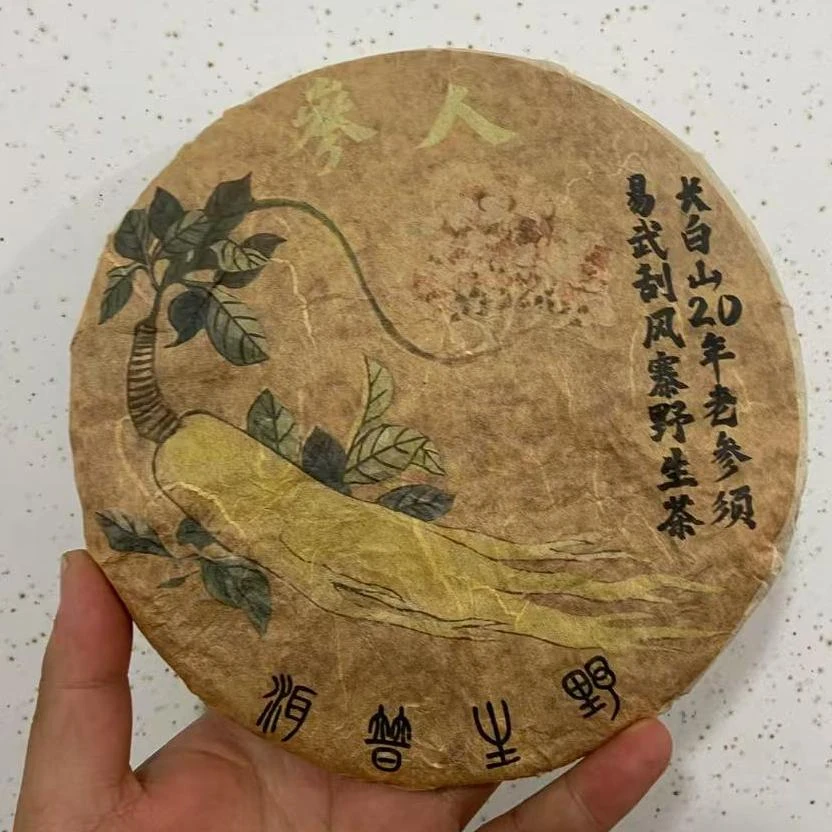 人參
长白山20年老参须
易武刮风寨野生茶
野生普洱